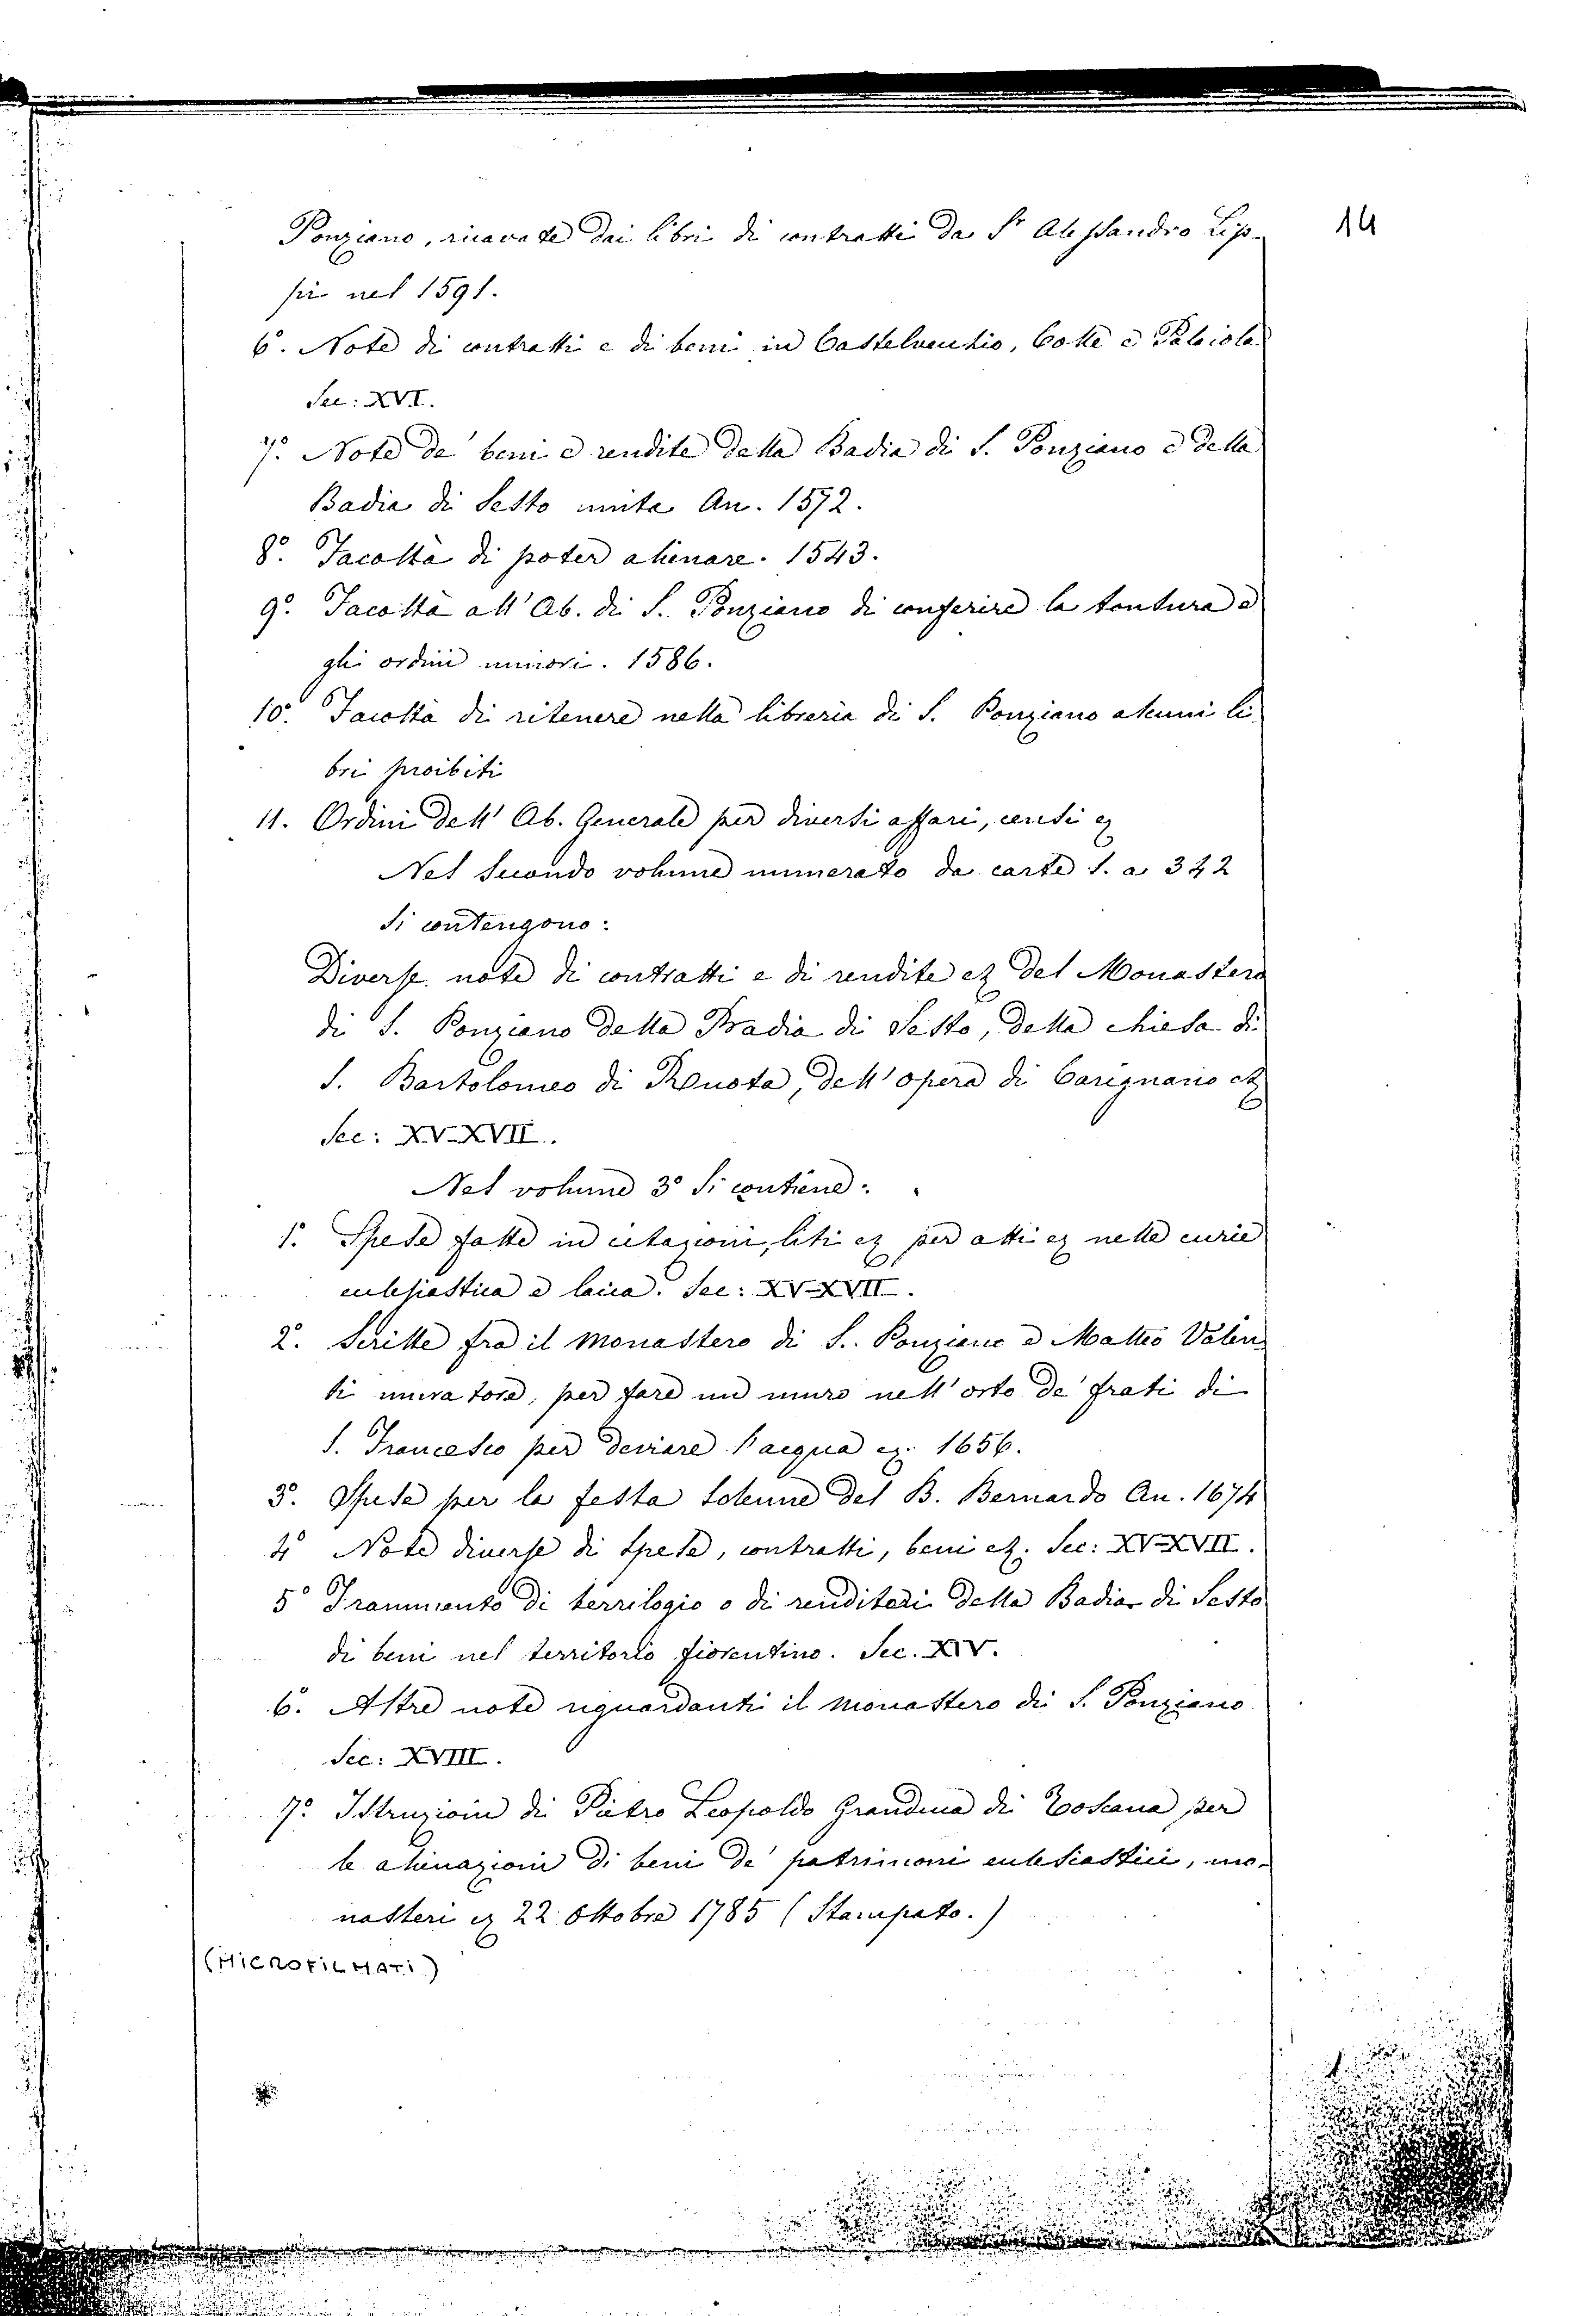 14
Ponziano, ricavate dai libri di contratti da Sr Alessandro Lip-
pi nel 1591.
6°. Note di contratti e di beni in Castelvecchio, Colle e Palaiola
Sec: XVI.
7°. Note de' beni e rendite della Badia di S. Ponziano e della
Badia di Sesto unita An. 1572.
8°. Facoltà di poter alienare. 1543.
9°. Facoltà all' Ab. di S. Ponziano di conferire la tonsura e
gli ordini minori. 1586.
10°. Facoltà di ritenere nella libreria di S. Ponziano alcuni li-
bri proibiti
11. Ordini dell' Ab. Generale per diversi affari, censi ez
Nel secondo volume numerato da carte 1. a 322
si contengono:
Diverse note di contratti e di rendite ez del Monastero
di S. Ponziano della Badia di Sesto, della chiesa di
S. Bartolomeo di Ruota, dell' opera di Carignano ez
Sec: XV-XVII.
Nel volume 3° si contiene:
1°. Spese fatte in citazioni, liti ez per atti ez nelle curie
ecclesiastica e laica. Sec: XV-XVII.
2°. Scritte fra il monastero di S. Ponziano e Matteo Valen
ti muratore, per fare un muro nell' orto de' frati di
S. Francesco per deviare l'acqua ez. 1656.
3°. Spese per la festa solenne del B. Bernardo An. 1674
4° Note diverse di spese, contratti, beni ez. Sec: XV-XVII.
5° Frammento di terrilogio o di renditari della Badia di Sesto
di beni nel territorio fiorentino. Sec. XIV.
6°. Altre note riguardanti il monastero di S. Ponziano
Sec: XVIII.
7°. Istruzioni di Pietro Leopoldo Granduca di Toscana per
le alienazioni di beni de' patrimoni ecclesiastici, mo-
nasteri ez 22 Ottobre 1785 (Stampato.)
(MICROFILMATI)